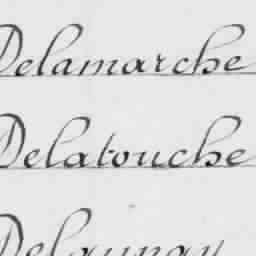 Delamarche
Delatouche
Delaunay